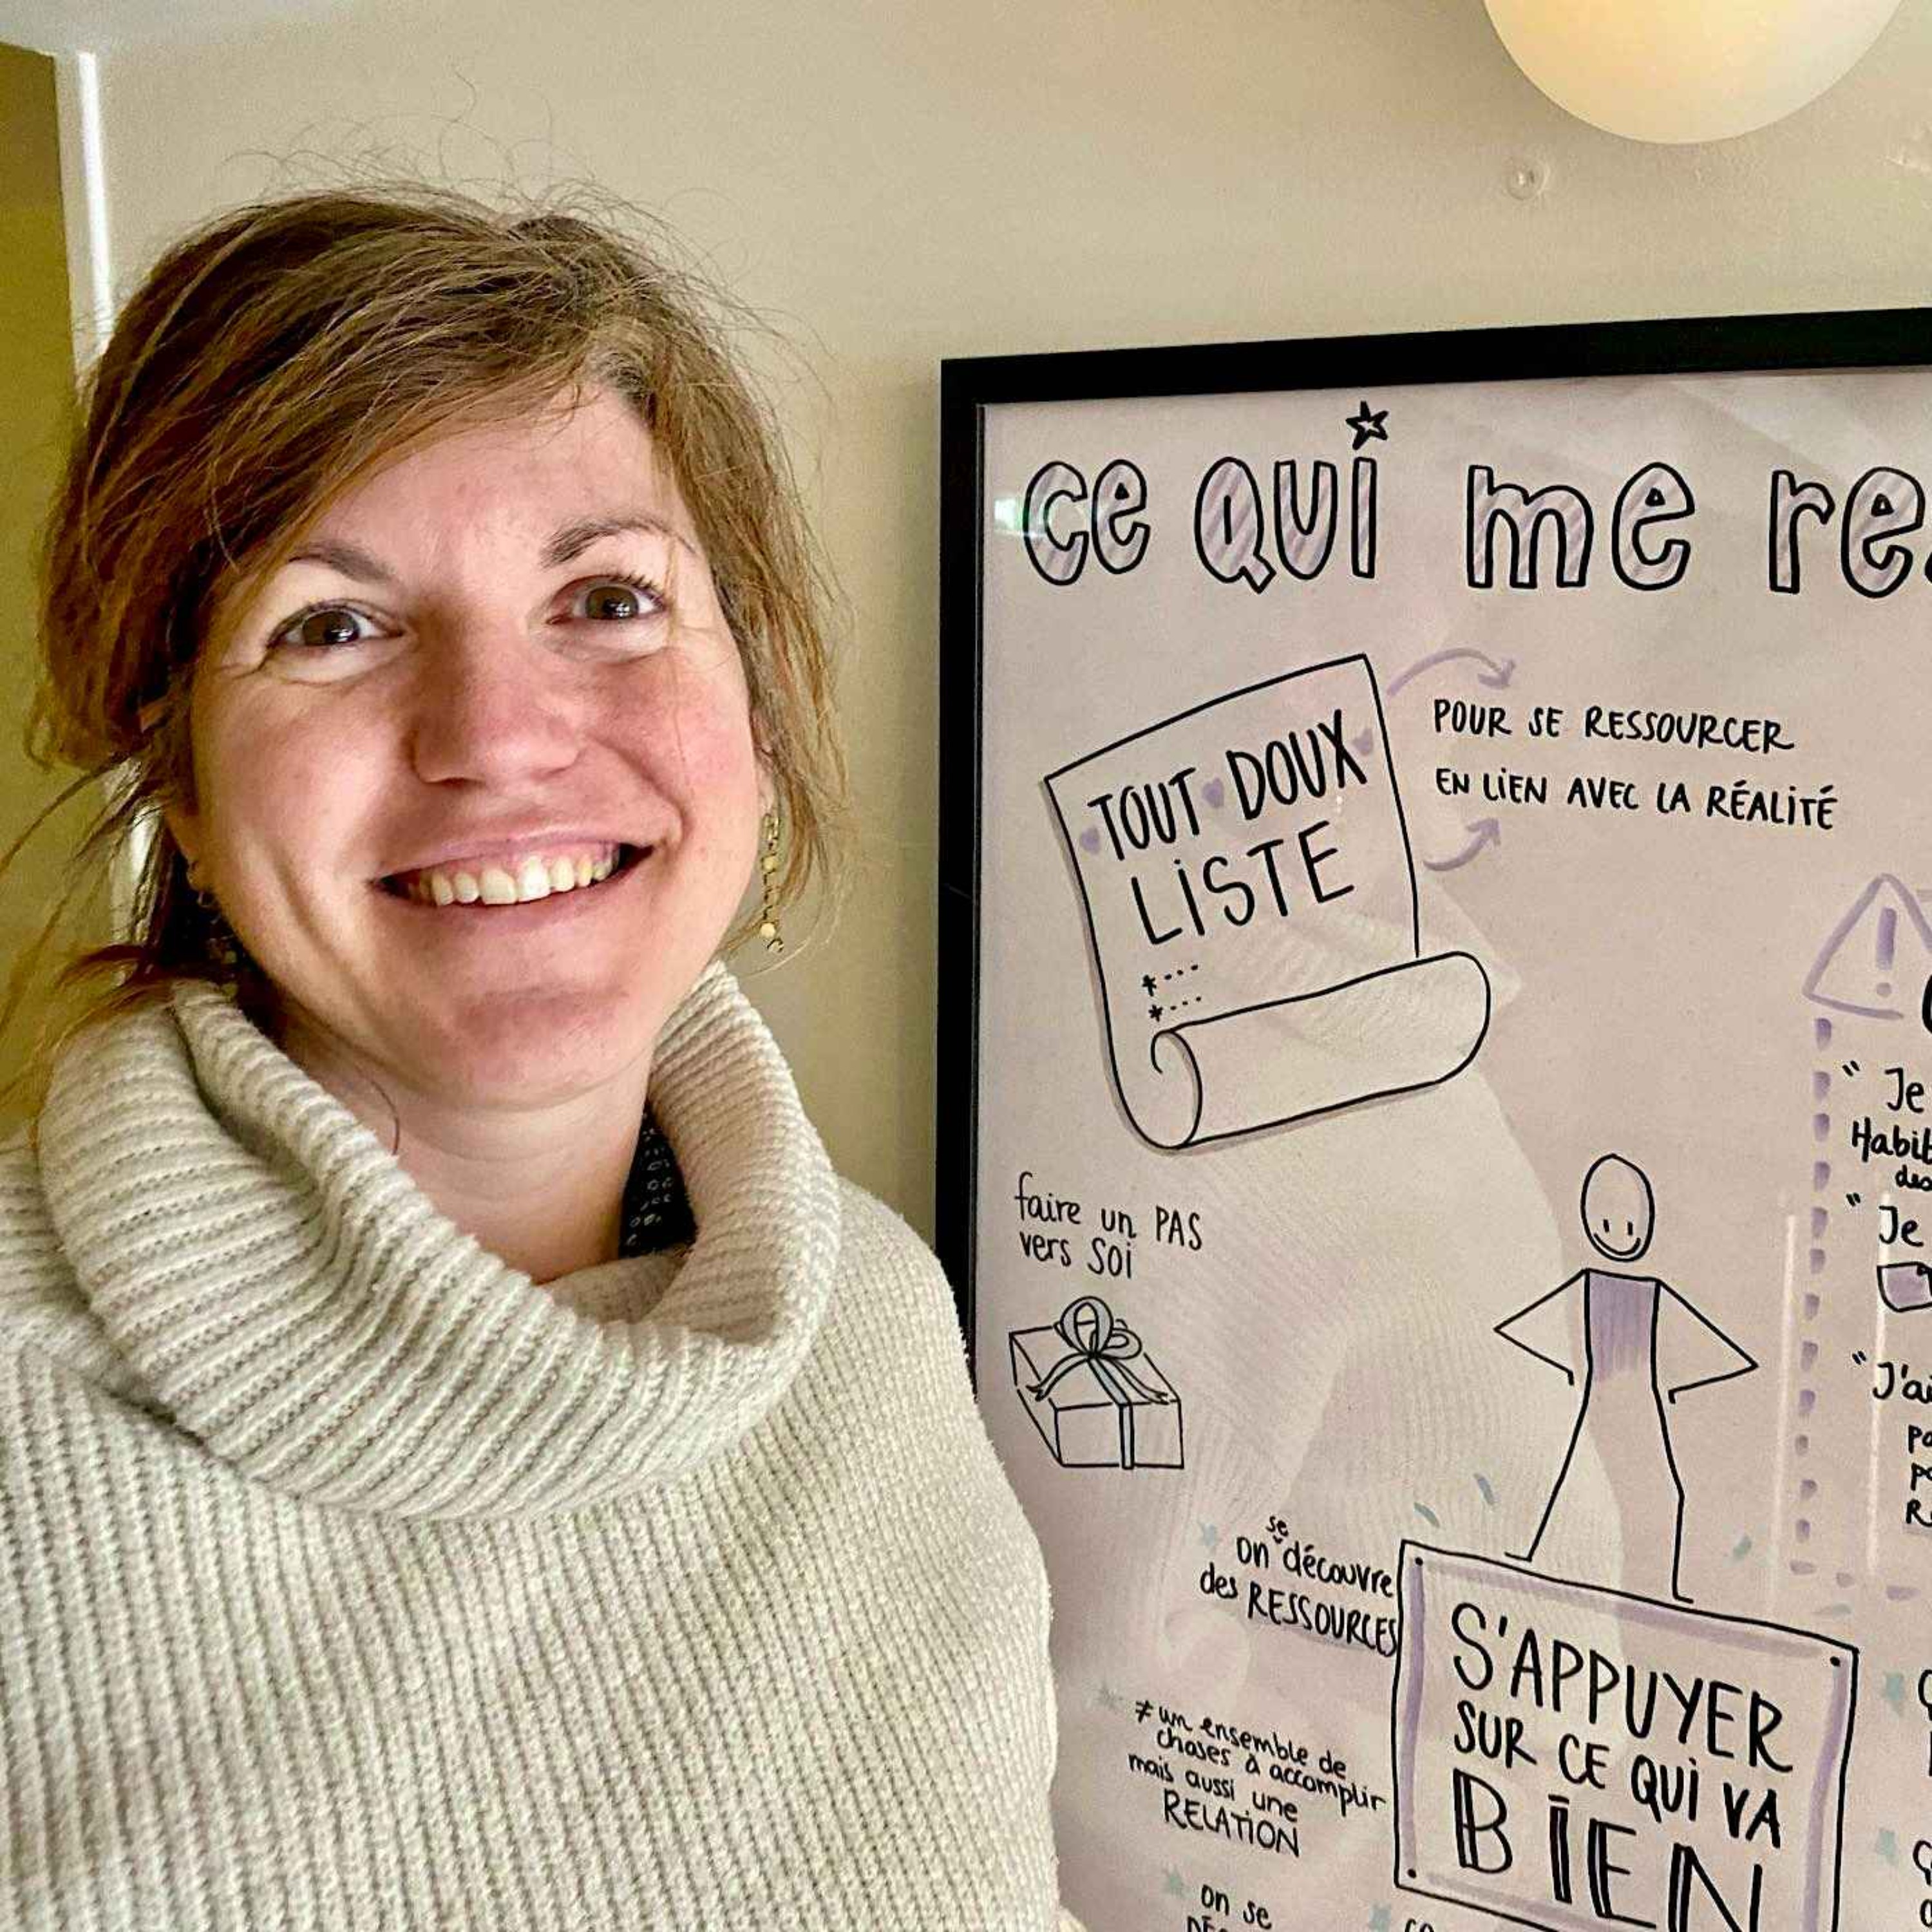 ce qui me re
TOUT DOUX
LISTE
POUR SE RESSOURCER
EN LIEN AVEC LA RÉALITÉ
faire un PAS
vers SOI
" Je
" Je
"J'ai
se
on découvre
des RESSOURCES
≠ un ensemble de
choses à accomplir
mais aussi une
RELATION
on se
S'APPUYER
SUR CE QUI VA
BIEN